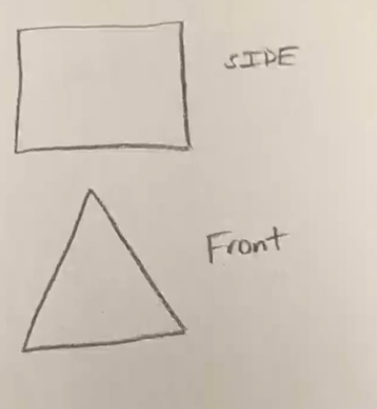 SIDE
Front